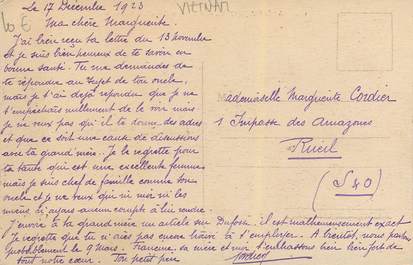 Le 17 Décembre 1923
VIETNAM
10 €
Ma chère Marguerite.
J'ai bien reçu ta lettre du 13 novembre
et je suis bien heureux de te savoir en
bonne santé. Tu me demandes de
te répondre au sujet de ton oncle,
mais je t'ai déjà répondu que je ne
t'empêchais nullement de le voir mais
je ne veux pas qu'il te donne des idées
et que ce soit une cause de discussions
avec ta grand'mère. Je le regrette pour
ta tante qui est une excellente femme
mais je suis chef de famille comme ton
oncle et je ne veux qui ni moi ni les
miens n'ayons aucun compte à lui rendre
J'envoie à ta grand mère un article sur Dufosse, il est malheureusement exact
Je regrette que tu n'aies pas encore trouvé à t'employer. A bientôt, nous partons
probablement le 9 Mars. Francine, sa mère et moi t'embrassons bien bien fort de
tout notre cœur. Ton petit père
Cordier
Mademoiselle Marguerite Cordier
1 Impasse des Amazones
Rueil
(S & O)